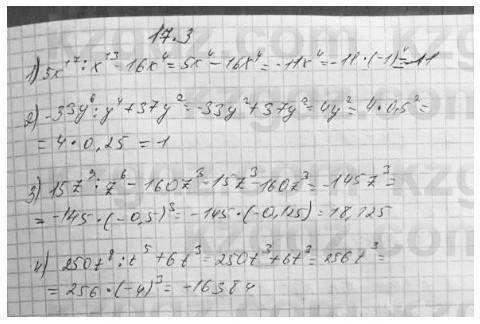 17.3
1) 5x¹⁷:x¹³-16x⁴=5x⁴-16x⁴=-11x⁴=-11·(-1)⁴=-11
2) -33y⁶:y⁴+37y²=-33y²+37y²=4y²=4·0,5²=
=4·0,25=1
3) 15z⁹:z⁶-160z³=15z³-160z³=-145z³=
=-145·(-0,5)³=-145·(-0,125)=18,125
4) 250t⁸:t⁵+6t³=250t³+6t³=256t³=
=256·(-4)³=-16384